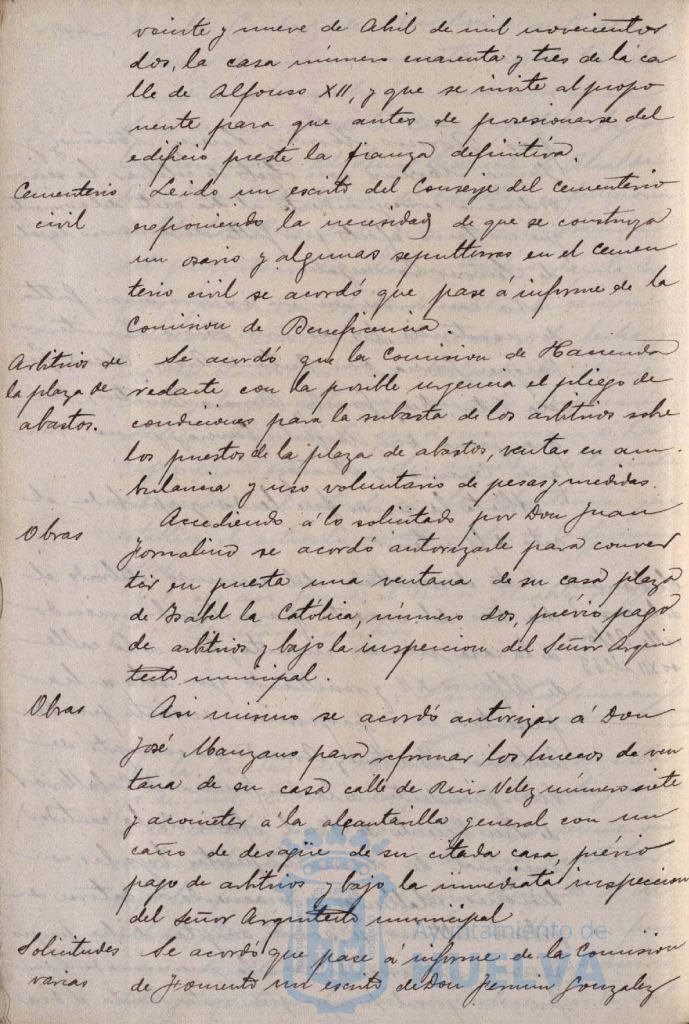 veinte y nueve de Abil de mil novecientos
dos, la casa número cuarenta y tres de la ca
lle de Alfonso XII, y que se invite al propo
nente para que antes de posesionarse del
edificio preste la fianza definitiva.
Cementerio civil
Leido un escrito del Conserje del cementerio
exponiendo la necesidad de que se construya
un osario y algunas sepulturas en el cemen
terio civil se acordó que pase á informe de la
Comision de Beneficencia.
Arbitrios de la plaza de abastos.
Se acordó que la Comision de Hacienda
redacte con la posible urgencia el pliego de
condiciones para la subasta de los arbitrios sobre
los puestos de la plaza de abastos, ventas en am-
bulancia y uso voluntario de pesas y medidas.
Obras
Accediendo á lo solicitado por Don Juan
se acordó autorizarle para conver
tir en puerta una ventana de su casa plaza
de Isabel la Católica, número dos, prévio pago
de arbitrios y bajo la inspeccion del Señor Arqui
tecto municipal.
Obras
Asi mismo se acordó autorizar á Don
José Manzano para reformar los huecos de ven
tana de su casa calle de Rui-Velez número siete
y acometer á la alcantarilla general con un
caño de desagüe de su citada casa, prévio
pago de arbitrios y bajo la inmediata inspeccion
del Señor Arquitecto municipal
Solicitudes varias
Se acordó que pase á informe de la Comision
de Fomento un escrito de Don Fermin Gonzalez
Ayuntamiento de
HUELVA